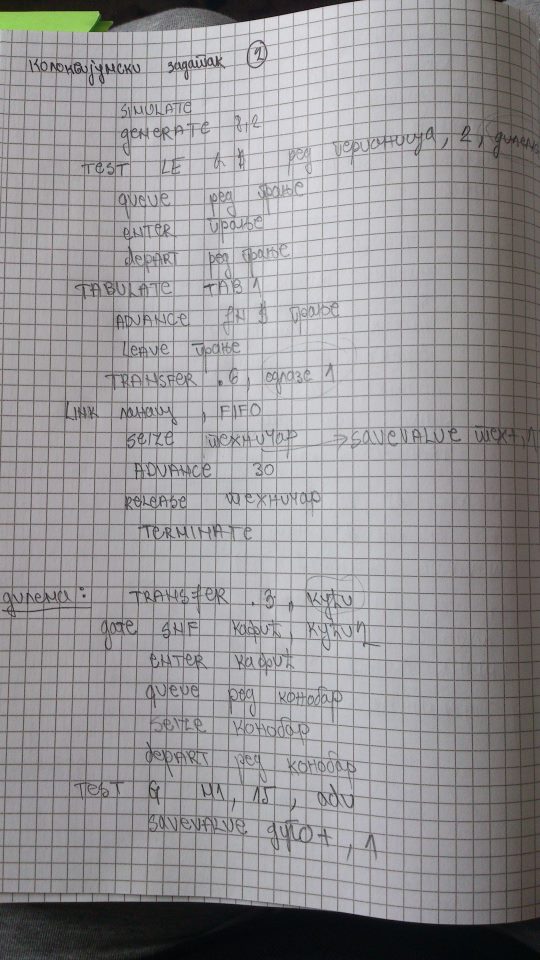 Колоквијумски задатак 2
SIMULATE
GENERATE 8,2
TEST LE ред перионица, 2, дилема
QUEUE ред прање
ENTER прање
DEPART ред прање
TABULATE TAB1
ADVANCE FN $ прање
LEAVE прање
TRANSFER .6, одлазе 1
LINK ланац, FIFO
SEIZE техничар → SAVEVALUE техн+,1
ADVANCE 30
RELEASE техничар
TERMINATE
дилема: TRANSFER .3, кући
GATE SNF кафић, кући
ENTER кафић
QUEUE ред конобар
SEIZE конобар
DEPART ред конобар
TEST G M1, 15, adv
SAVEVALUE дуго+, 1